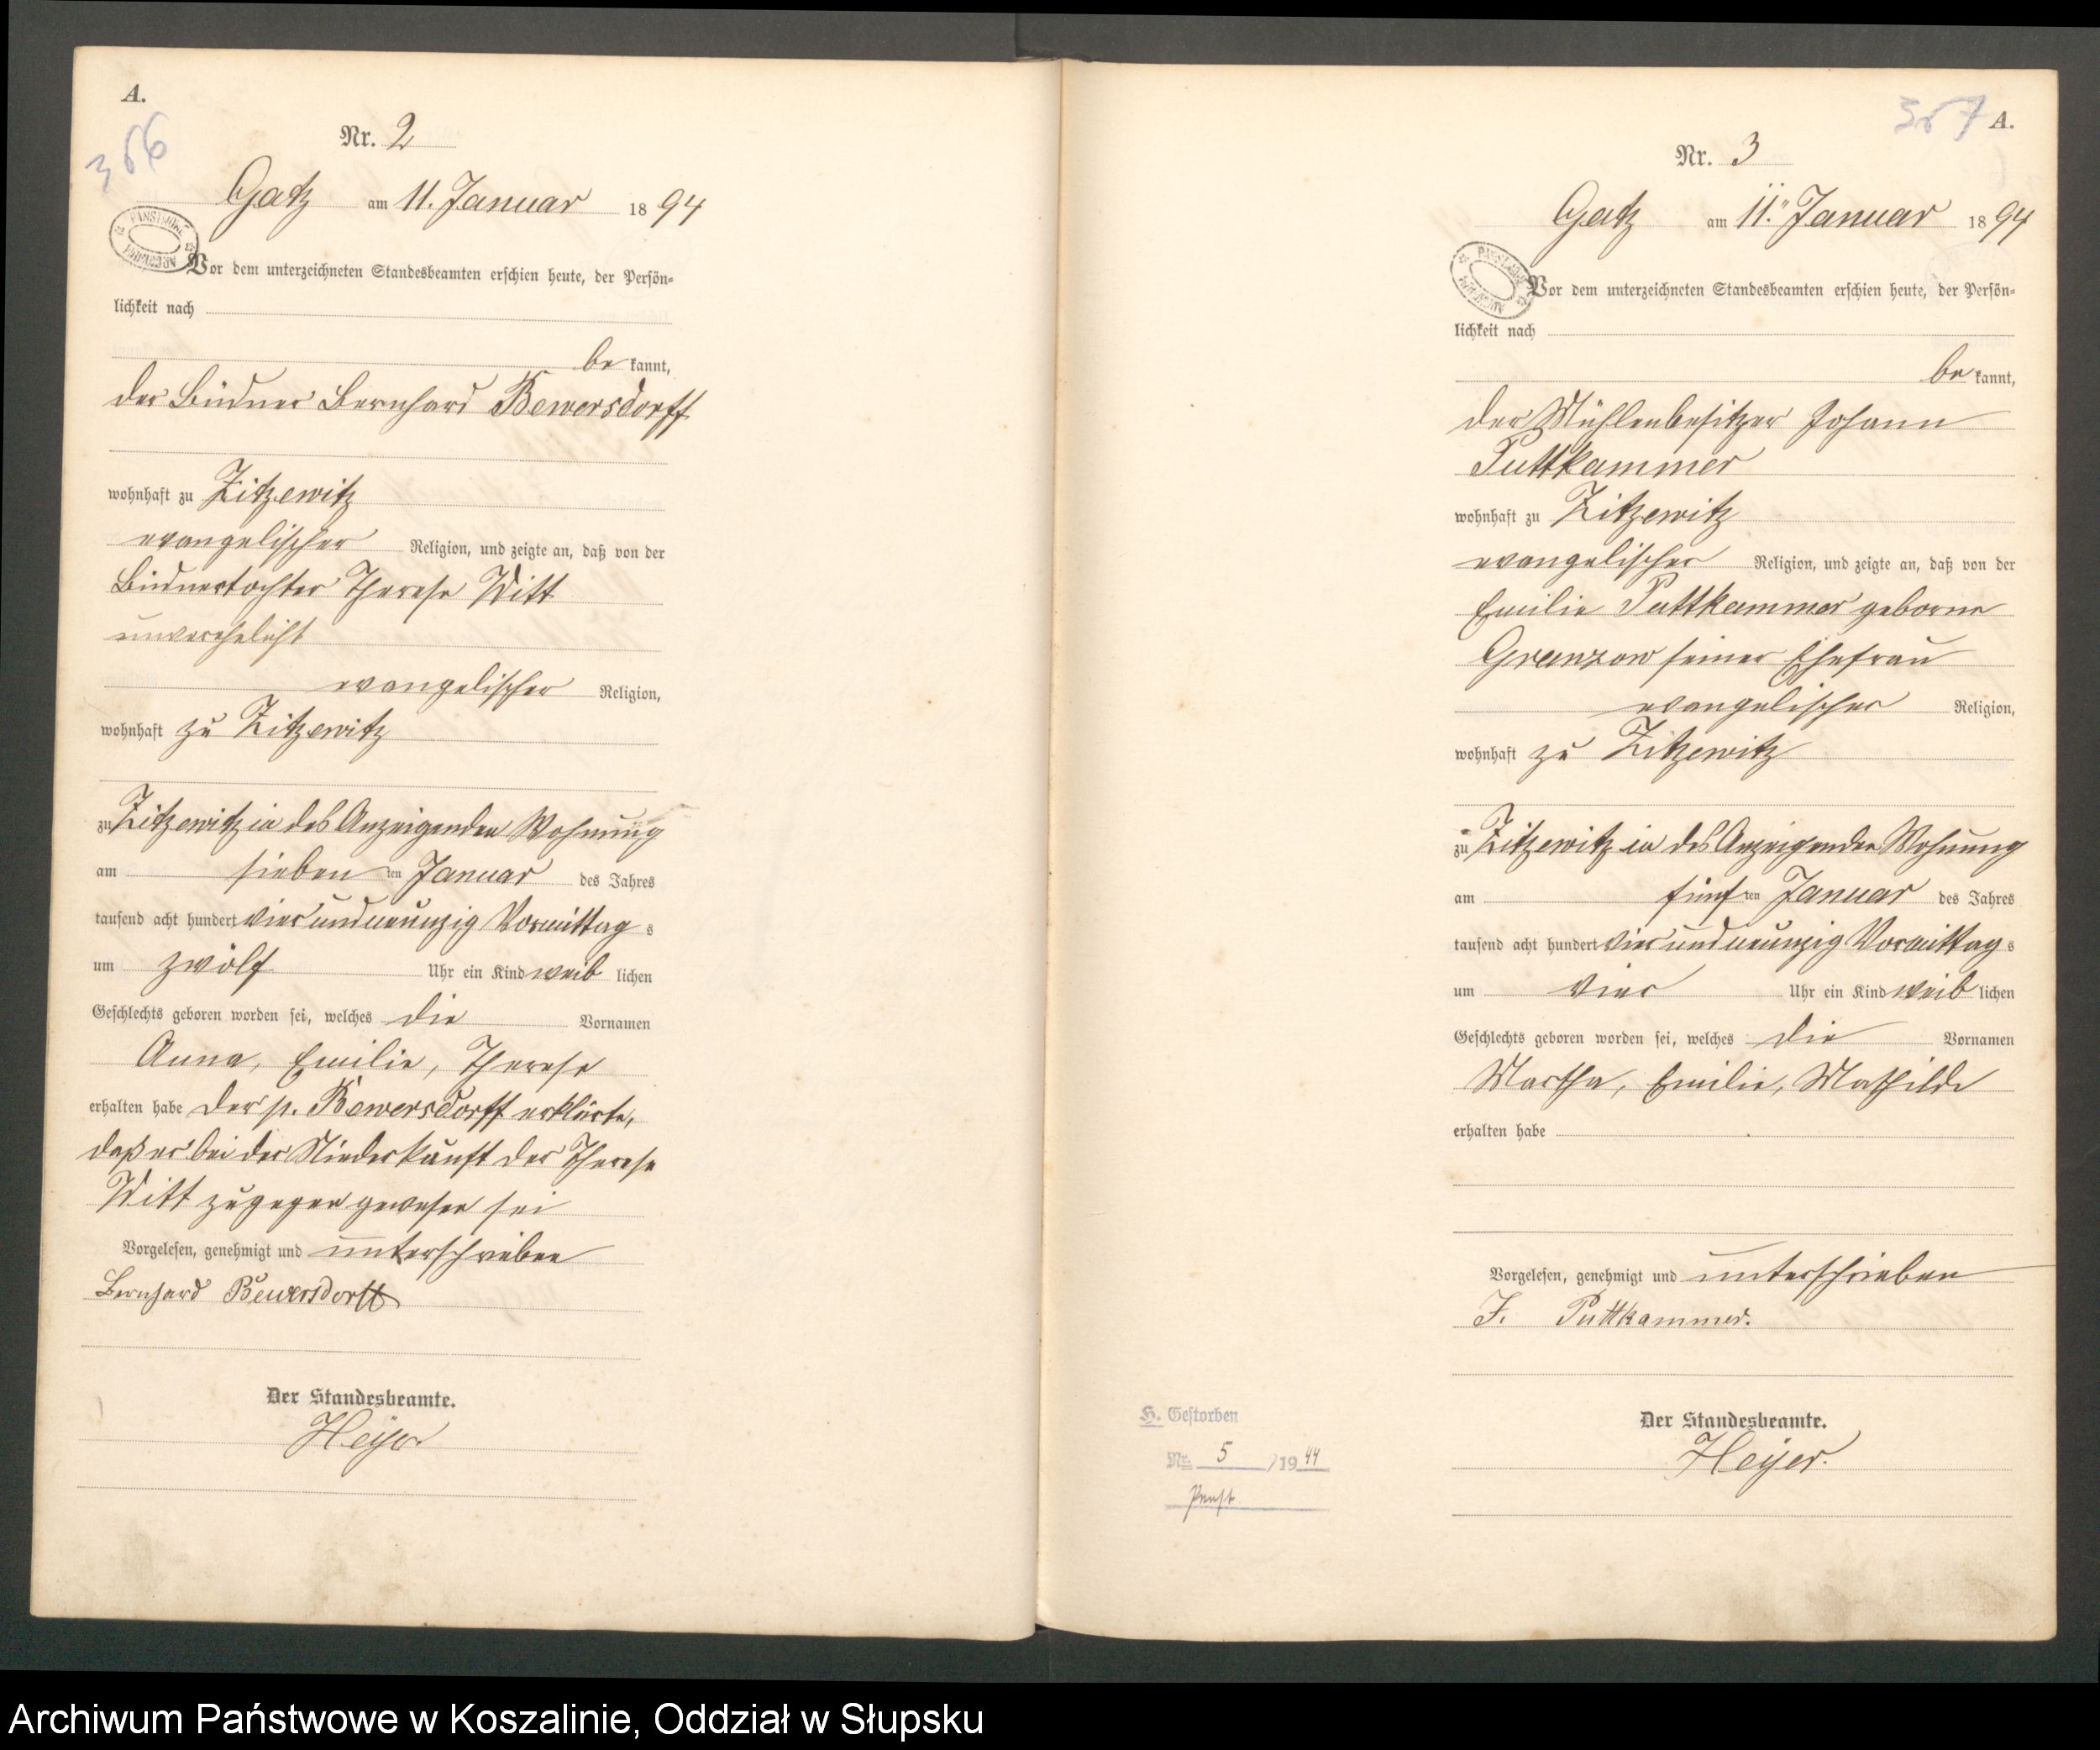 A.
356
Nr. 2
Gatz am 11. Januar 1894
Vor dem unterzeichneten Standesbeamten erschien heute, der Persön-
lichkeit nach
be kannt,
der Büdner Bernhard Bewersdorff
wohnhaft zu Zitzewitz
evangelischer Religion, und zeigte an, daß von der
Büdnertochter Therese Witt
unverehelicht
evangelischer Religion,
wohnhaft zu Zitzewitz
zu Zitzewitz in des Anzeigenden Wohnung
am sieben ten Januar des Jahres
tausend acht hundert vierundneunzig Vormittag s
um zwölf Uhr ein Kind weib lichen
Geschlechts geboren worden sei, welches die Vornamen
Anna, Emilie, Therese
erhalten habe der p. Bewersdorff erklärte,
daß er bei der Niederkunft der Therese
Witt zugegen gewesen sei
Vorgelesen, genehmigt und unterschrieben
Bernhard Bewersdorff
Der Standesbeamte.
Heyer
357 A.
Nr. 3
Gatz am 11. Januar 1894
Vor dem unterzeichneten Standesbeamten erschien heute, der Persön-
lichkeit nach
be kannt,
der Mühlenbesitzer Johann
Puttkammer
wohnhaft zu Zitzewitz
evangelischer Religion, und zeigte an, daß von der
Emilie Puttkammer geborne
Granzow seiner Ehefrau
evangelischer Religion,
wohnhaft zu Zitzewitz
zu Zitzewitz in des Anzeigenden Wohnung
am fünf ten Januar des Jahres
tausend acht hundert vierundneunzig Vormittag s
um vier Uhr ein Kind weib lichen
Geschlechts geboren worden sei, welches die Vornamen
Martha, Emilie, Mathilde
erhalten habe
Vorgelesen, genehmigt und unterschrieben
J. Puttkammer.
Der Standesbeamte.
Heyer.
H. Gestorben
Nr. 5 / 19 44
Archiwum Państwowe w Koszalinie, Oddział w Słupsku